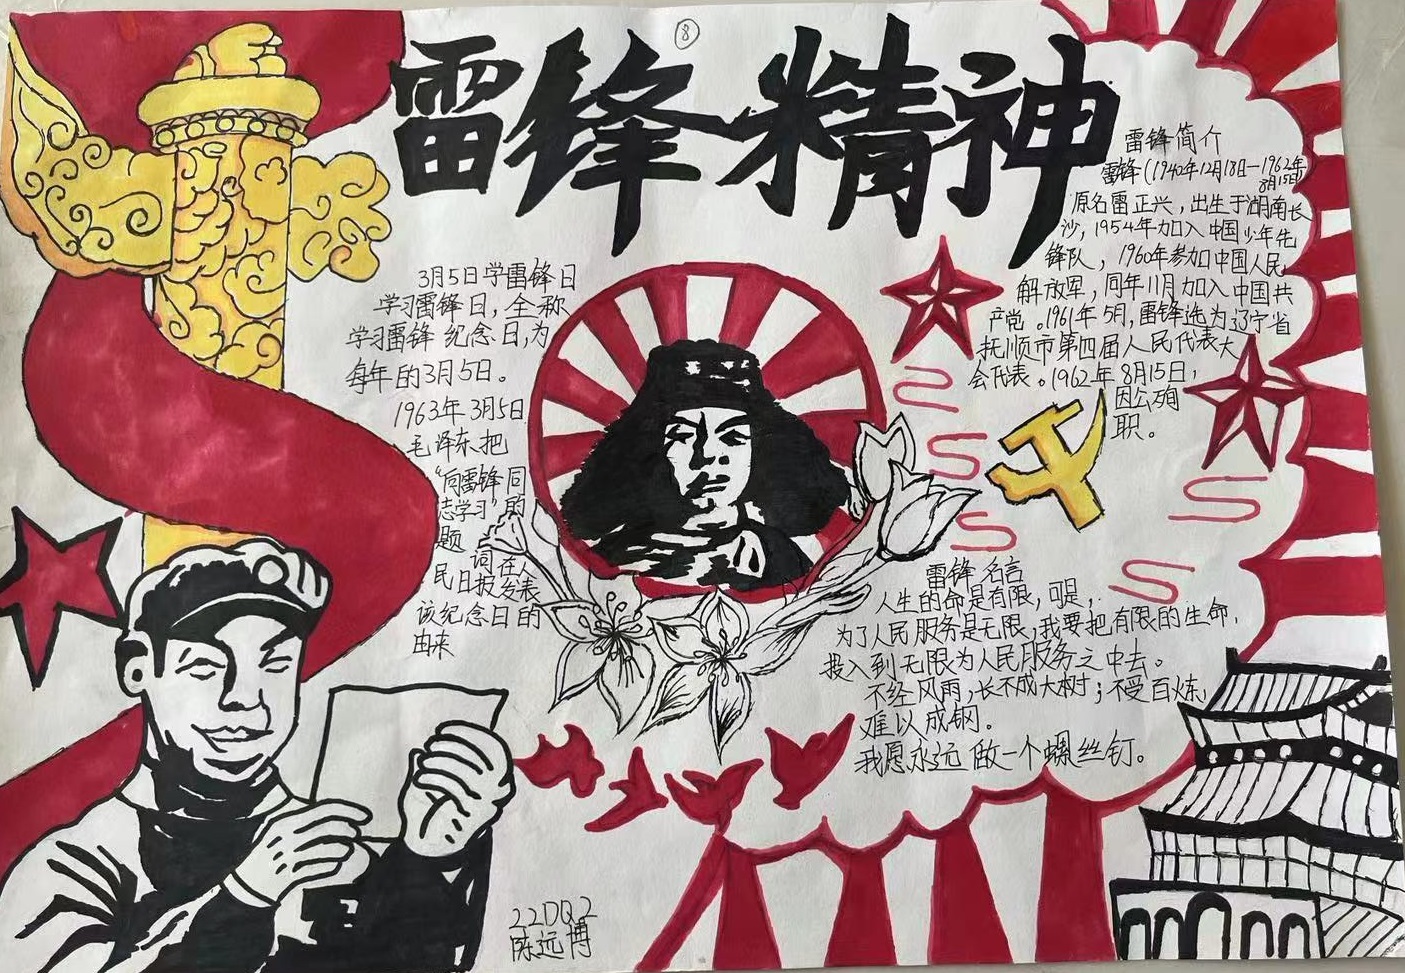 8
雷锋精神
3月5日学雷锋日
学习雷锋日,全称
学习雷锋纪念日,为
每年的3月5日。
1963年3月5日
毛泽东把
“向雷锋同
志学习”的
题
词在人
民日报发表
该纪念日的
由来
雷锋简介
雷锋(1940年12月18日—1962年
8月15日)
原名雷正兴,出生于湖南长
沙,1954年加入中国少年先
锋队,1960年参加中国人民
解放军,同年11月加入中国共
产党。1961年5月,雷锋选为辽宁省
抚顺市第四届人民代表大
会代表。1962年8月15日,
因公殉
职。
雷锋名言
人生的命是有限,可是,
为了人民服务是无限,我要把有限的生命,
投入到无限为人民服务之中去。
不经风雨,长不成大树;不受百炼,
难以成钢。
我愿永远做一个螺丝钉。
22DQ2
陈远博